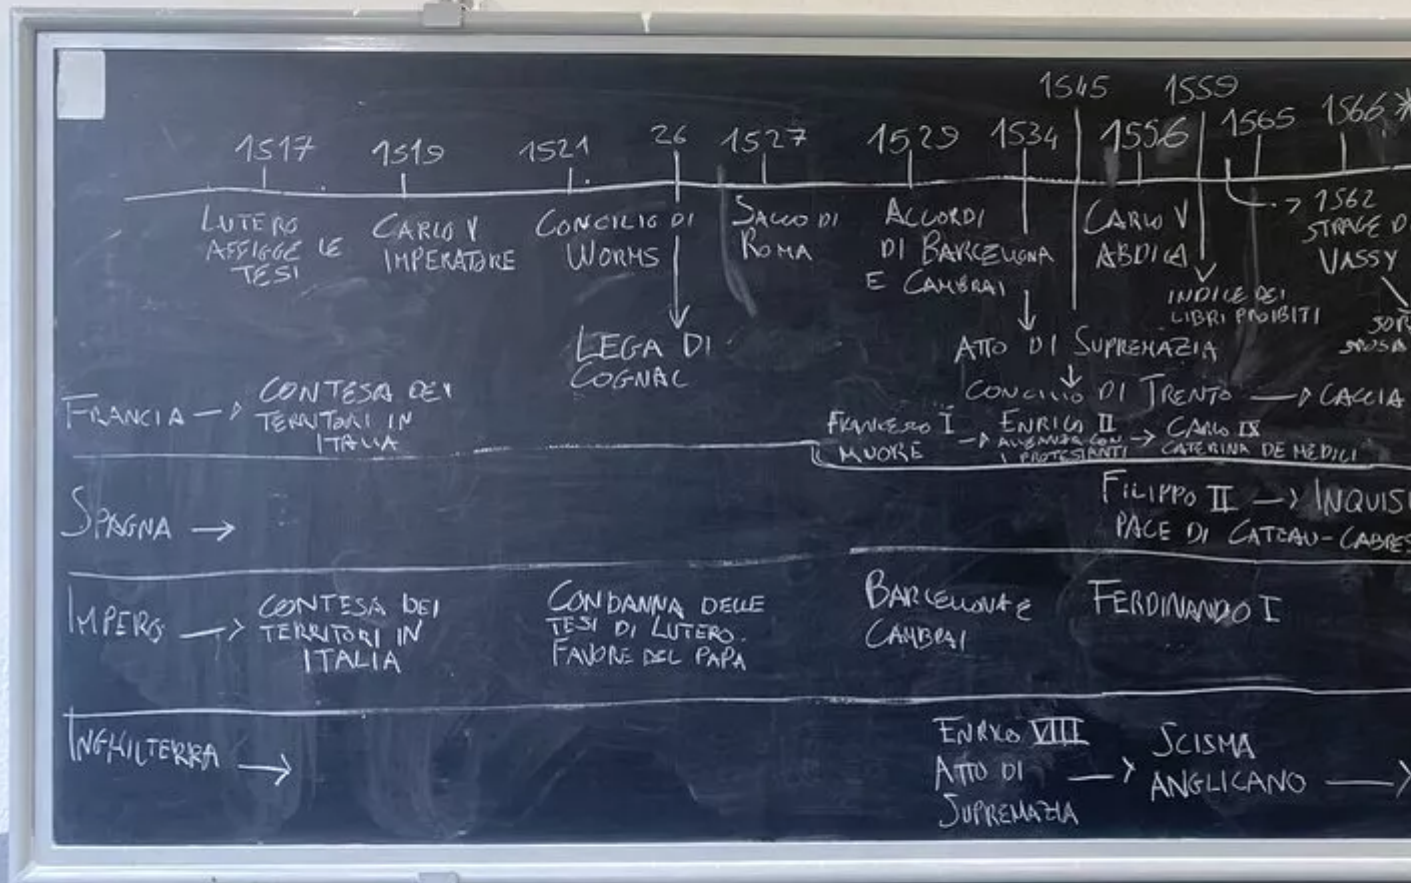 1545 1559
1517 1519 1521 26 1527 1529 1534 1556 1565 1566 *
LUTERO
AFFIGGE LE
TESI
CARLO V
IMPERATORE
CONCILIO DI
WORMS
LEGA DI
COGNAC
SACCO DI
ROMA
ACCORDI
DI BARCELLONA
E CAMBRAI
ATTO DI SUPREMAZIA
CONCILIO DI TRENTO → CACCIA
CARLO V
ABDICA
INDICE DEI
LIBRI PROIBITI
→ 1562
STRAGE DI
VASSY
SPOSA
FRANCIA → CONTESA DEI
TERRITORI IN
ITALIA
FRANCESCO I
MUORE
→ ENRICO II
ALLEANZA CON
I PROTESTANTI
→ CARLO IX
CATERINA DE MEDICI
SPAGNA →
FILIPPO II → INQUISI
PACE DI CATEAU-CABRES
IMPERO → CONTESA DEI
TERRITORI IN
ITALIA
CONDANNA DELLE
TESI DI LUTERO.
FAVORE DEL PAPA
BARCELLONA E
CAMBRAI
FERDINANDO I
INGHILTERRA →
ENRICO VIII
ATTO DI
SUPREMAZIA
→ SCISMA
ANGLICANO →